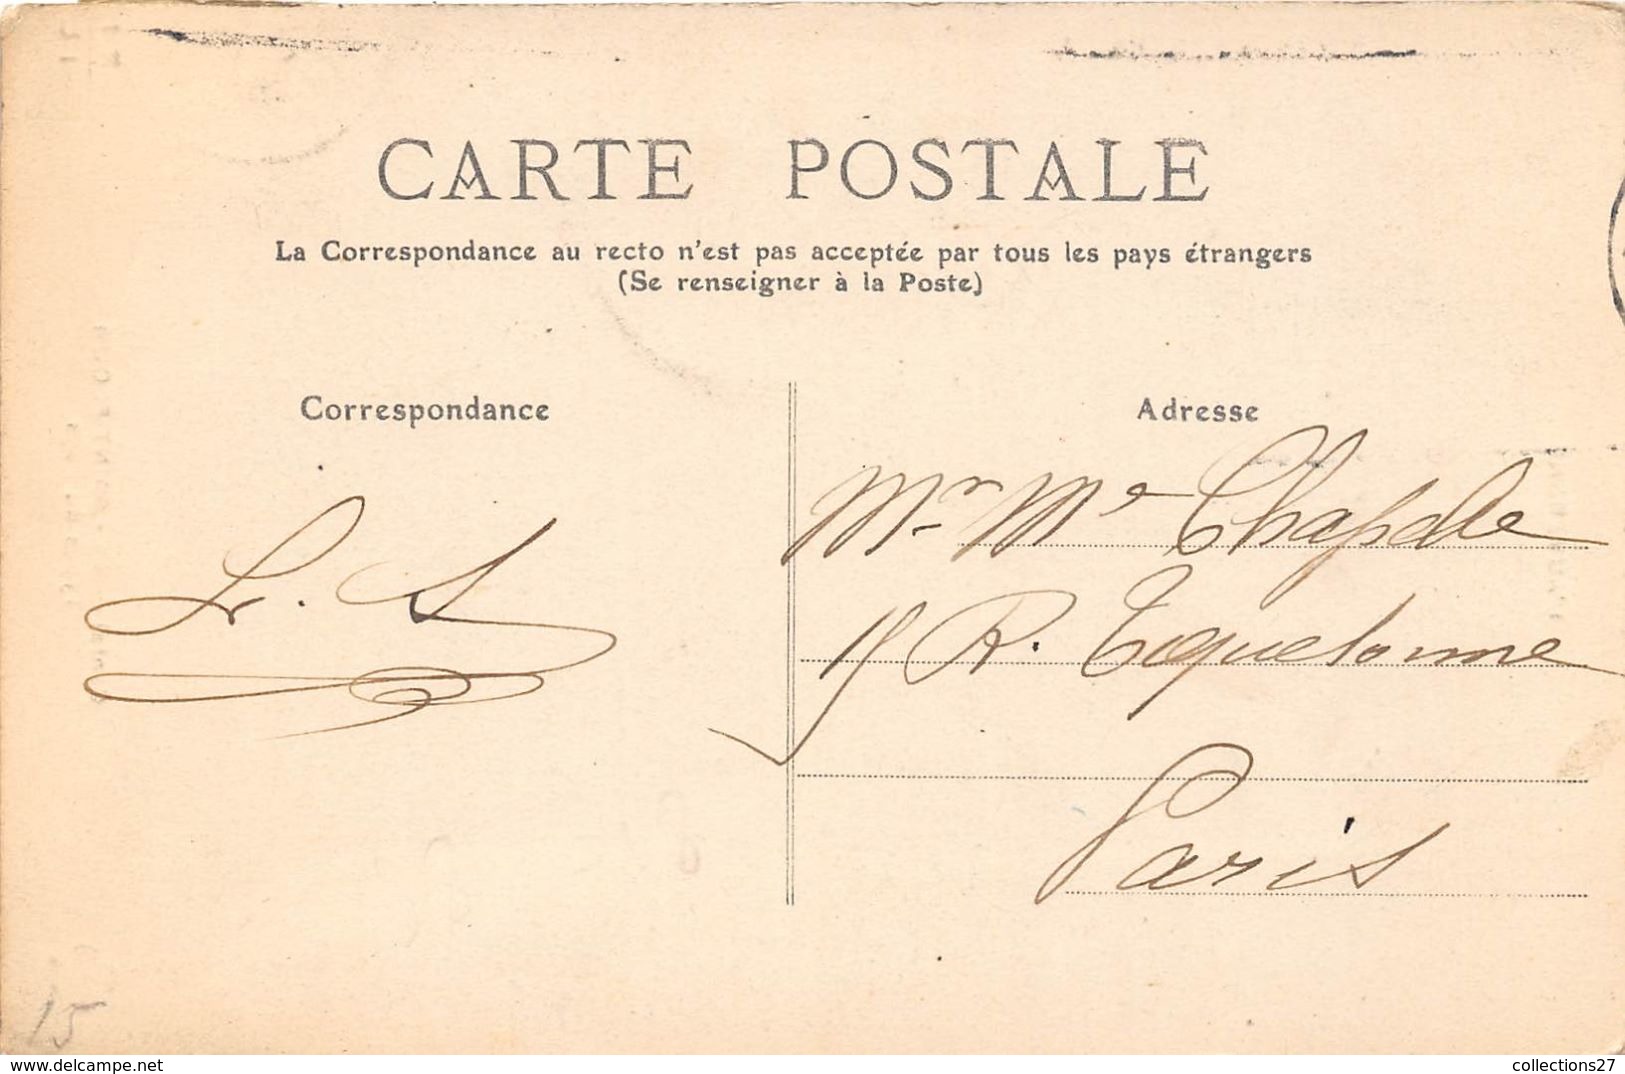 CARTE POSTALE
La Correspondance au recto n'est pas acceptée par tous les pays étrangers
(Se renseigner à la Poste)
Correspondance
Adresse
L. S
Mr Me Chapelle
R. Tiquetonne
Paris
15
www.delcampe.net
collections27